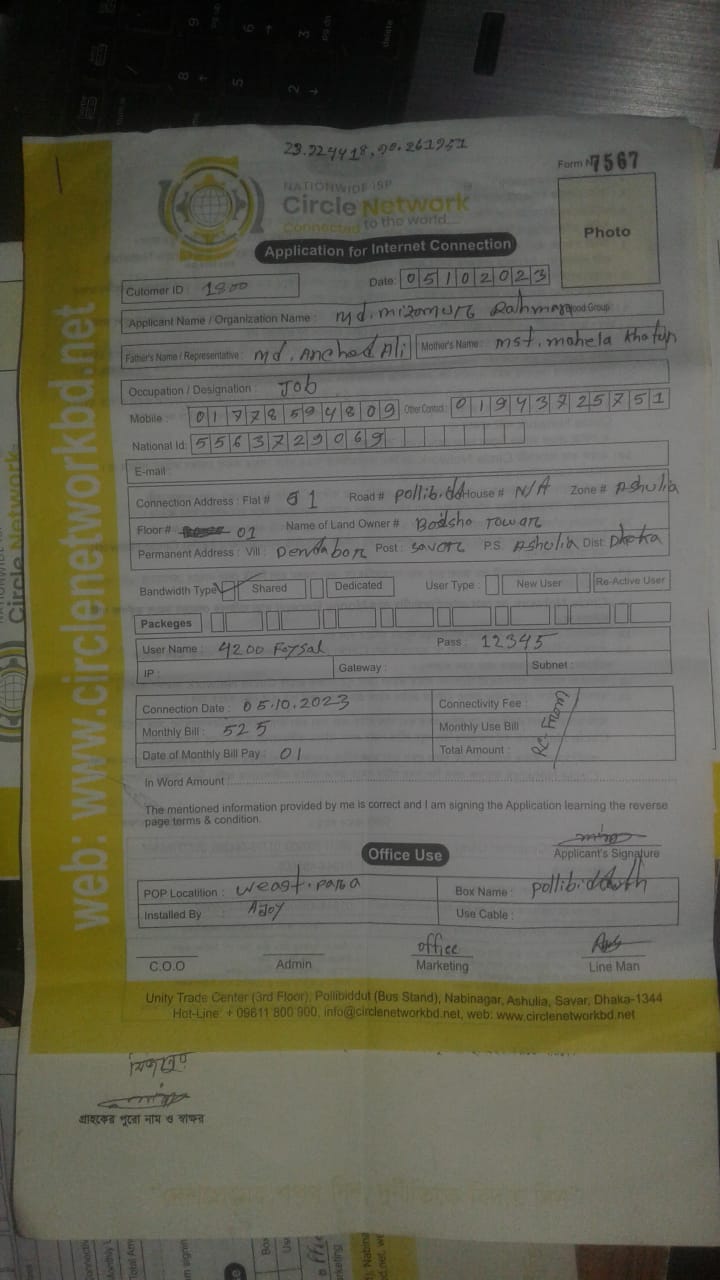 23.924418,90.261951
Form N 7567
NATIONWIDE ISP
Circle Network
Connected to the world....
Photo
Application for Internet Connection
Cutomer ID : 1800 Date: 05102023
Applicant Name / Organization Name : Md. mizanure Rahman ood Group:
Father's Name / Representative : Md. Anchad Ali Mother's Name : mst. mahela khatun
Occupation / Designation : Job
Mobile : 01778594809 Other Contact : 01943725751
National Id: 5563729069
E-mail :
Connection Address : Flat # G1 Road # pollibid House # N/A Zone # Ashulia
Floor # 01 Name of Land Owner # Badsha Towar
Permanent Address : Vill : Dendabor Post : Savar P.S. Ashulia Dist: Dhaka
Bandwidth Type Shared Dedicated User Type : New User Re-Active User
Packeges
User Name : 4200 Foysal Pass : 12345
IP : Gateway : Subnet :
Connection Date : 05.10.2023 Connectivity Fee :
Monthly Bill : 525 Monthly Use Bill :
Date of Monthly Bill Pay : 01 Total Amount :
In Word Amount
The mentioned information provided by me is correct and I am signing the Application learning the reverse
page terms & condition.
Applicant's Signature
Office Use
POP Locatilion : weast. para Box Name : pollibiddut
Installed By AJoy Use Cable :
office
C.O.O Admin Marketing Line Man
Unity Trade Center (3rd Floor), Pollibiddut (Bus Stand), Nabinagar, Ashulia, Savar, Dhaka-1344
Hot-Line: + 09611 800 900, info@circlenetworkbd.net, web: www.circlenetworkbd.net
web: www.circlenetworkbd.net
গ্রাহকের পুরো নাম ও স্বাক্ষর